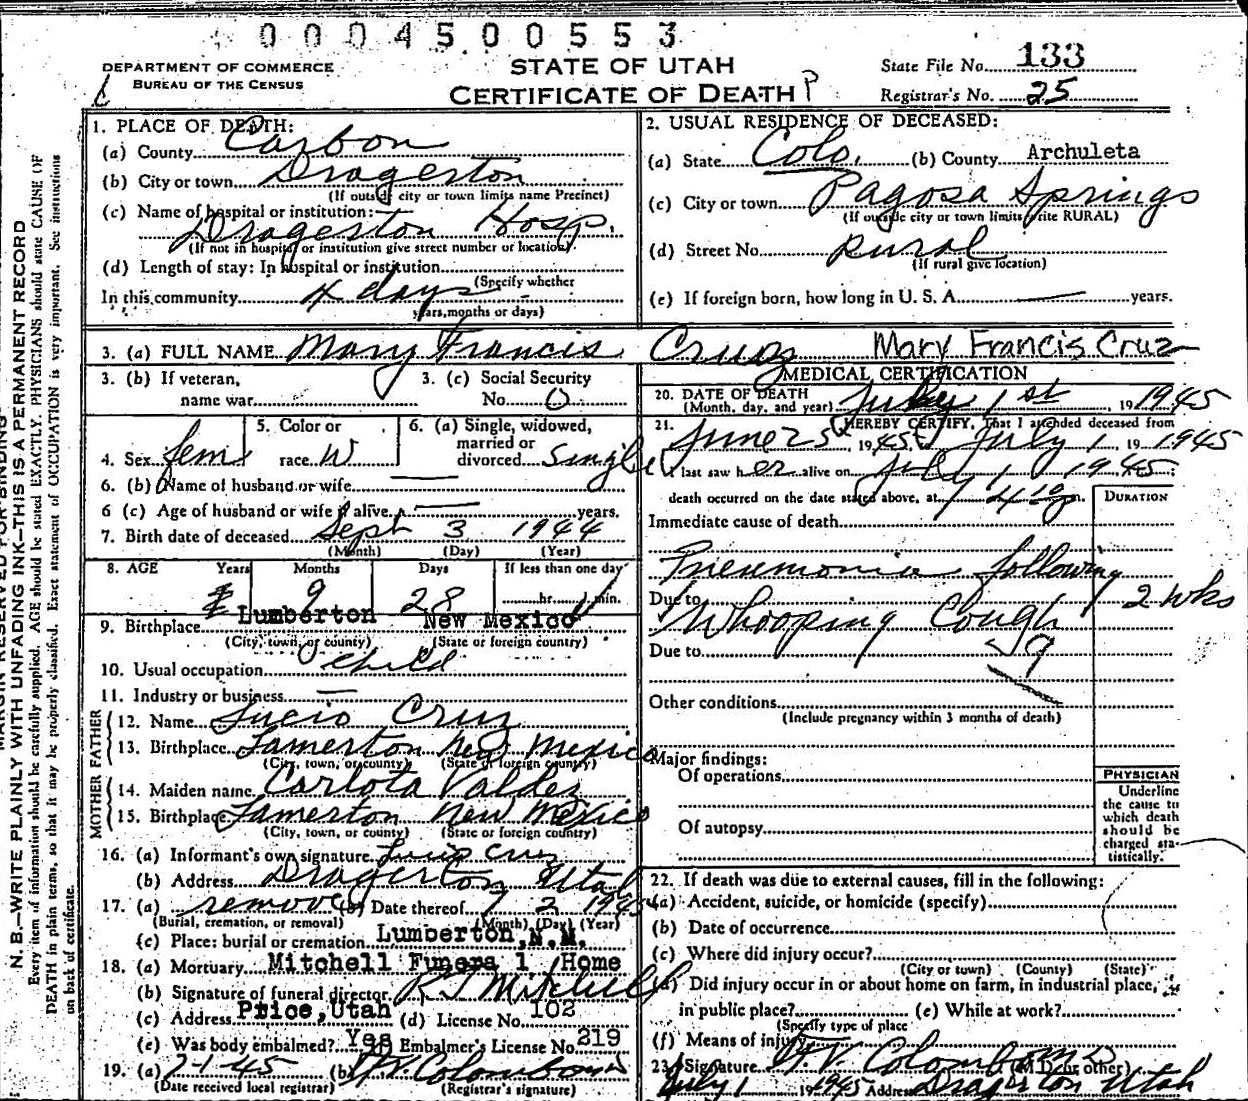 0004500553
DEPARTMENT OF COMMERCE
BUREAU OF THE CENSUS
STATE OF UTAH
CERTIFICATE OF DEATH P
State File No. 133
Registrar's No. 25
1. PLACE OF DEATH:
(a) County Carbon
(b) City or town Dragerton
(If outside city or town limits name Precinct)
(c) Name of hospital or institution:
Dragerton Hosp.
(If not in hospital or institution give street number or location)
(d) Length of stay: In hospital or institution
(Specify whether
In this community 4 days
years, months or days)
2. USUAL RESIDENCE OF DECEASED:
(a) State Colo. (b) County Archuleta
(c) City or town Pagosa Springs
(If outside city or town limits write RURAL)
(d) Street No. Rural
(If rural give location)
(e) If foreign born, how long in U. S. A. — years.
3. (a) FULL NAME Mary Francis Cruz Mary Francis Cruz
3. (b) If veteran,
name war
3. (c) Social Security
No. O
4. Sex fem
5. Color or
race W
6. (a) Single, widowed,
married or
divorced Single
6. (b) Name of husband or wife —
6 (c) Age of husband or wife if alive — years.
7. Birth date of deceased Sept 3 1944
(Month) (Day) (Year)
8. AGE Years Months Days If less than one day
9 28 hr. min.
9. Birthplace Lumberton New Mexico
(City, town, or county) (State or foreign country)
10. Usual occupation Child
11. Industry or business —
FATHER
12. Name Lucio Cruz
13. Birthplace Lamerton New Mexico
(City, town, or county) (State or foreign country)
MOTHER
14. Maiden name Carlota Valdez
15. Birthplace Lamerton New Mexico
(City, town, or county) (State or foreign country)
16. (a) Informant's own signature Lucio Cruz
(b) Address Dragerton Utah
17. (a) remove (b) Date thereof 7 2 1945
(Burial, cremation, or removal) (Month) (Day) (Year)
(c) Place: burial or cremation Lumberton,N.M.
18. (a) Mortuary Mitchell Funera l Home
(b) Signature of funeral director R J Mitchell
(c) Address Price,Utah (d) License No. 102
(e) Was body embalmed? Yes (f) Embalmer's License No. 219
19. (a) 7-1-45 (b) Colombo
(Date received local registrar) (Registrar's signature)
MEDICAL CERTIFICATION
20. DATE OF DEATH
(Month, day, and year) July 1st, 19 1945
21. I HEREBY CERTIFY, That I attended deceased from
June 25, 19 45 to July 1 19 1945
I last saw h er alive on July 1 19 45;
death occurred on the date stated above, at m.
DURATION
Immediate cause of death
Pneumonia following
Due to 2 wks
Whooping Cough
Due to 9
Other conditions
(Include pregnancy within 3 months of death)
Major findings:
Of operations
Of autopsy
PHYSICIAN
Underline
the cause to
which death
should be
charged sta-
tistically.
22. If death was due to external causes, fill in the following:
(a) Accident, suicide, or homicide (specify)
(b) Date of occurrence
(c) Where did injury occur?
(City or town) (County) (State)
(d) Did injury occur in or about home on farm, in industrial place,
in public place? (e) While at work?
(Specify type of place
(f) Means of injury
23. Signature Colombo (M.D. or other)
July 1 19 1945 Address Dragerton Utah
MARGIN RESERVED FOR BINDING
N. B.—WRITE PLAINLY WITH UNFADING INK—THIS IS A PERMANENT RECORD
Every item of information should be carefully supplied. AGE should be stated EXACTLY. PHYSICIANS should state CAUSE OF
DEATH in plain terms, so that it may be properly classified. Exact statement of OCCUPATION is very important. See instructions
on back of certificate.